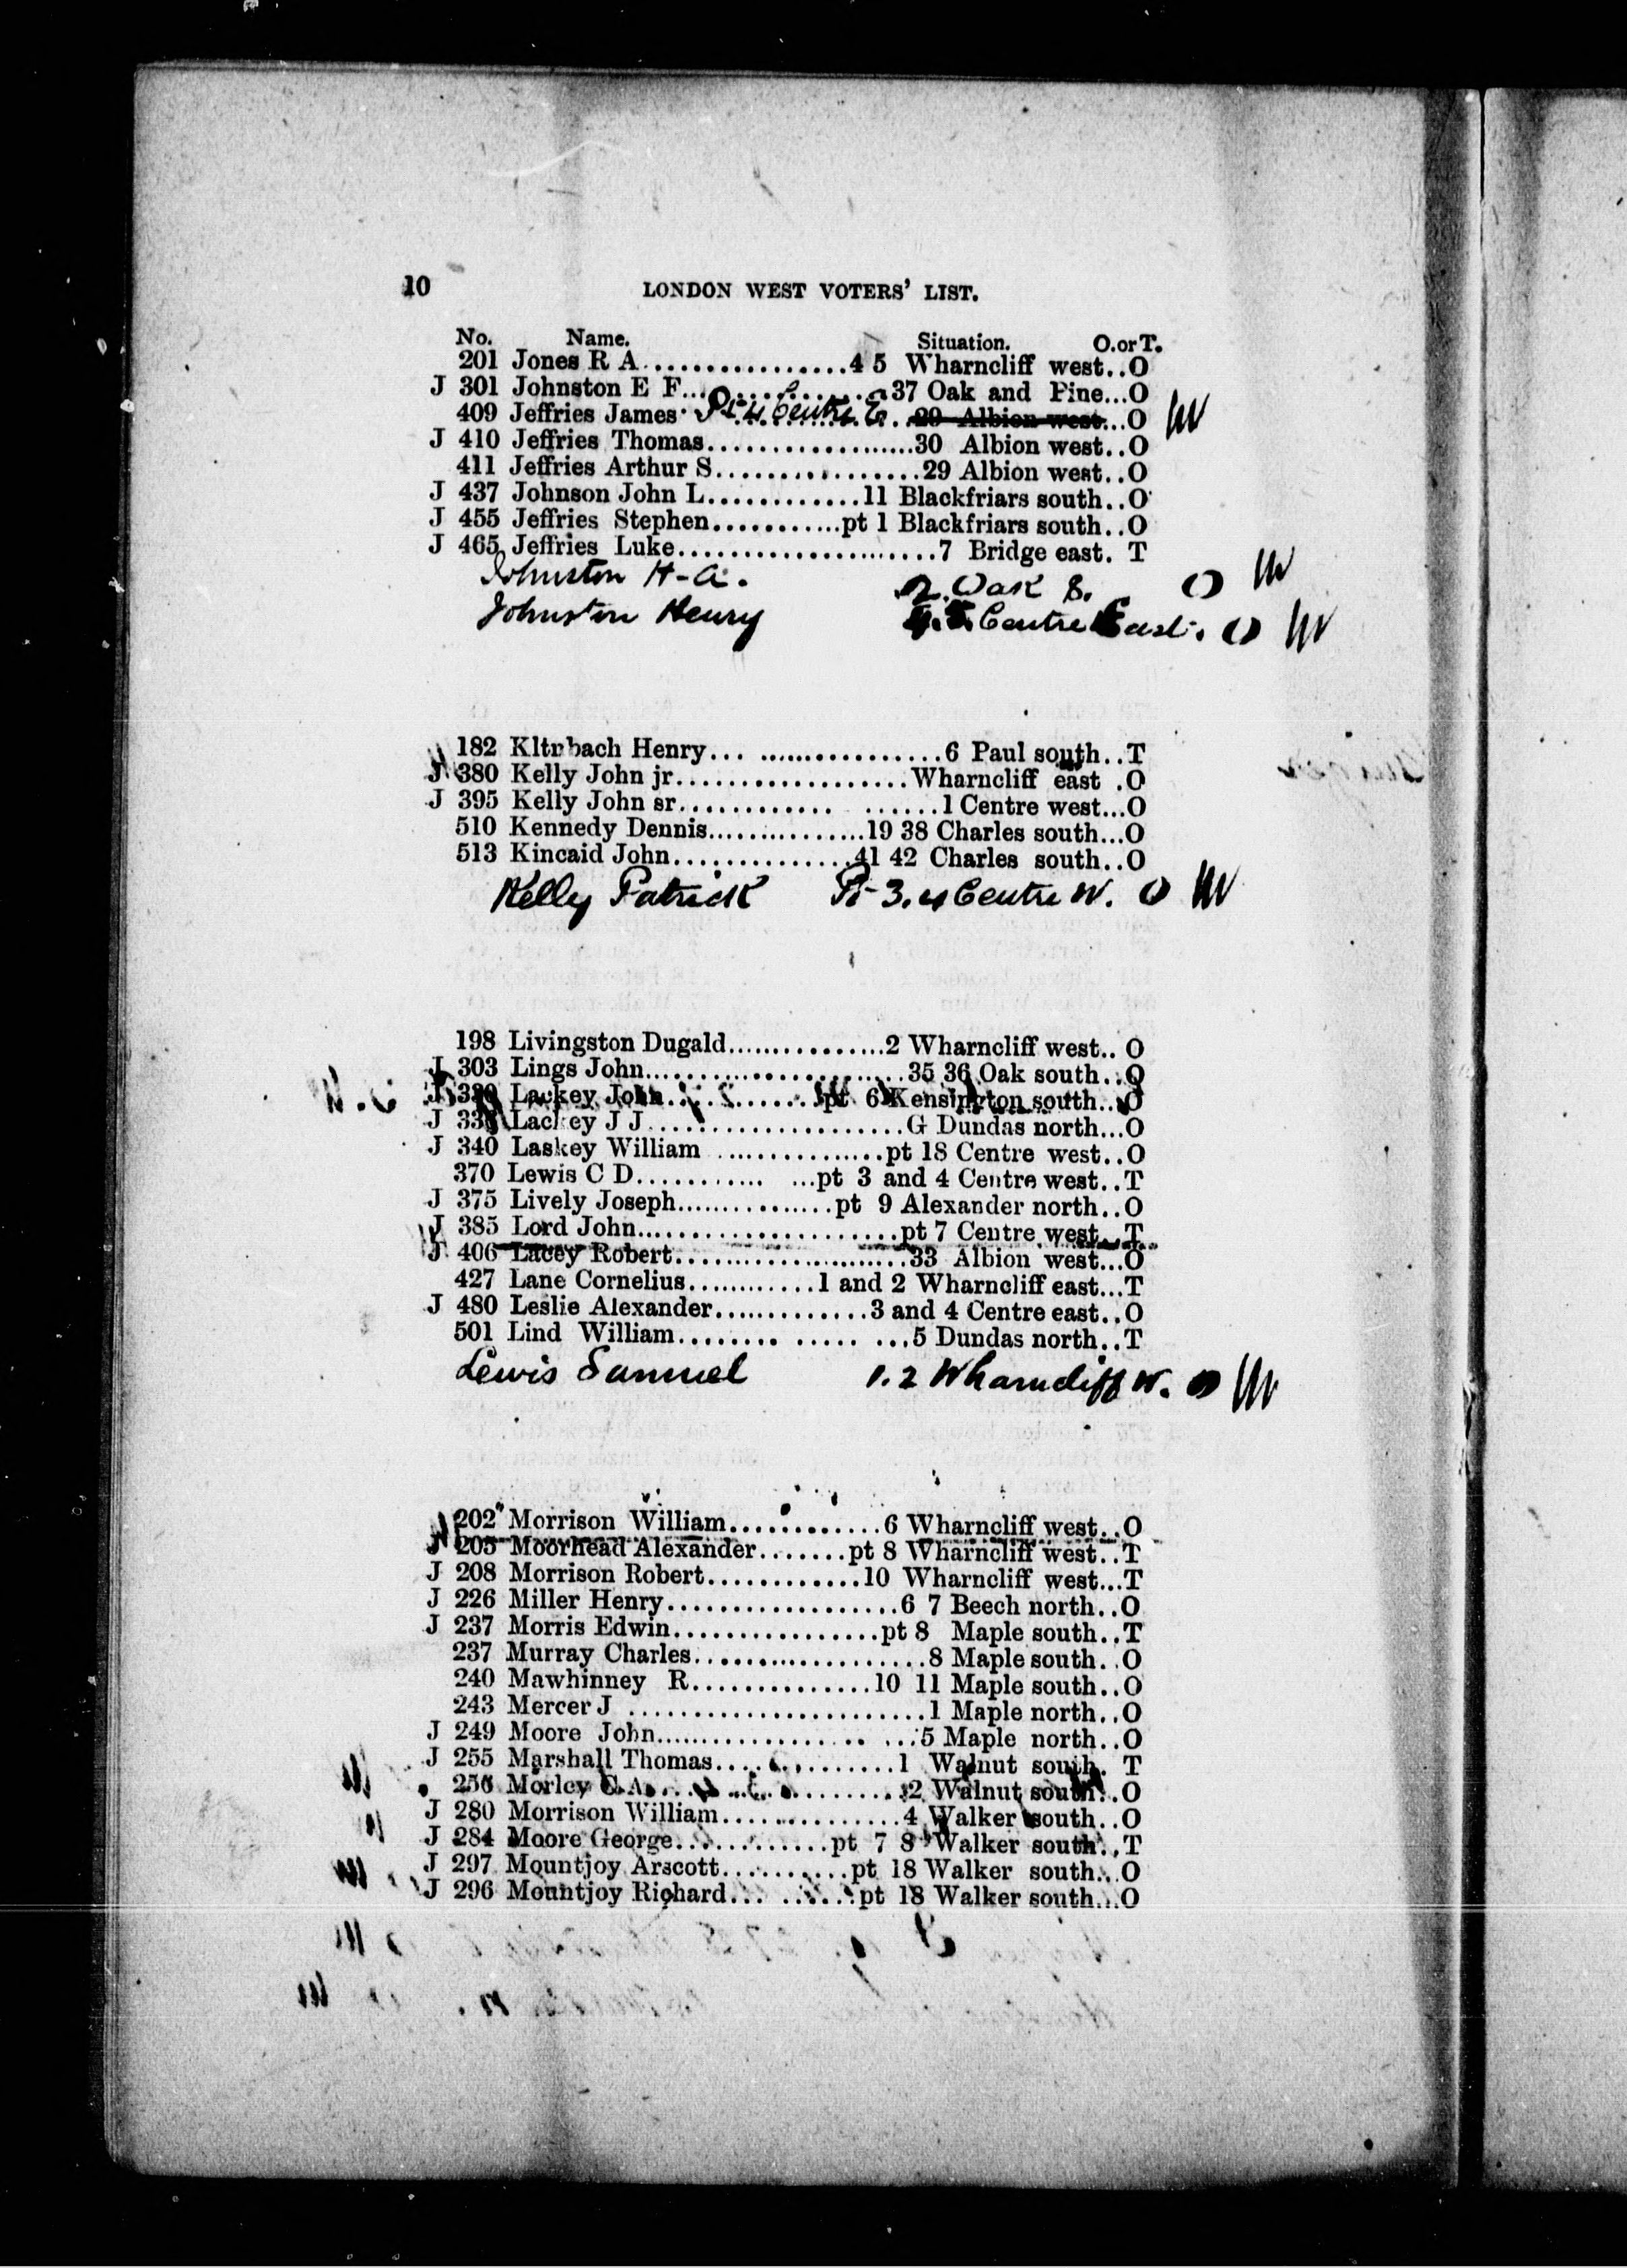 10 LONDON WEST VOTERS' LIST.
No. Name. Situation. O.orT.
201 Jones R A................4 5 Wharncliff west..O
J 301 Johnston E F..............37 Oak and Pine...O
409 Jeffries James Pt 4 Centre E. 29 Albion west...O
J 410 Jeffries Thomas..................30 Albion west..O
411 Jeffries Arthur S................29 Albion west..O
J 437 Johnson John L............11 Blackfriars south..O
J 455 Jeffries Stephen...........pt 1 Blackfriars south..O
J 465 Jeffries Luke....................7 Bridge east. T
Johnston H-A. 2. Oak S. O
Johnston Henry Centre East. O
182 Kltrbach Henry... ................6 Paul south..T
J 380 Kelly John jr..................Wharncliff east .O
J 395 Kelly John sr............ ......1 Centre west...O
510 Kennedy Dennis...............19 38 Charles south...O
513 Kincaid John..............41 42 Charles south..O
Kelly Patrick Pt 3.4 Centre W. O
198 Livingston Dugald...............2 Wharncliff west.. O
J 303 Lings John.......................35 36 Oak south..O
J Lackey John............pt 6 Kensington south..O
J Lackey J J....................G Dundas north...O
J 340 Laskey William ...............pt 18 Centre west..O
370 Lewis C D........... ...pt 3 and 4 Centre west..T
J 375 Lively Joseph...............pt 9 Alexander north..O
J 385 Lord John.......................pt 7 Centre west...T
J 406 Lacey Robert.....................33 Albion west...O
427 Lane Cornelius............1 and 2 Wharncliff east...T
J 480 Leslie Alexander.............3 and 4 Centre east..O
501 Lind William........ ..... ...5 Dundas north..T
Lewis Samuel 1.2 Wharncliff W. O
202 Morrison William............6 Wharncliff west..O
J 205 Moorhead Alexander.......pt 8 Wharncliff west..T
J 208 Morrison Robert............10 Wharncliff west...T
J 226 Miller Henry..................6 7 Beech north..O
J 237 Morris Edwin................pt 8 Maple south..T
237 Murray Charles..................8 Maple south..O
240 Mawhinney R..............10 11 Maple south..O
243 Mercer J .......................1 Maple north..O
J 249 Moore John.................. ...5 Maple north..O
J 255 Marshall Thomas..............1 Walnut south. T
256 Morley C A....................2 Walnut south..O
J 280 Morrison William..............4 Walker south..O
J 284 Moore George............pt 7 8 Walker south..T
J 297 Mountjoy Arscott..........pt 18 Walker south...O
J 296 Mountjoy Richard... ......pt 18 Walker south...O